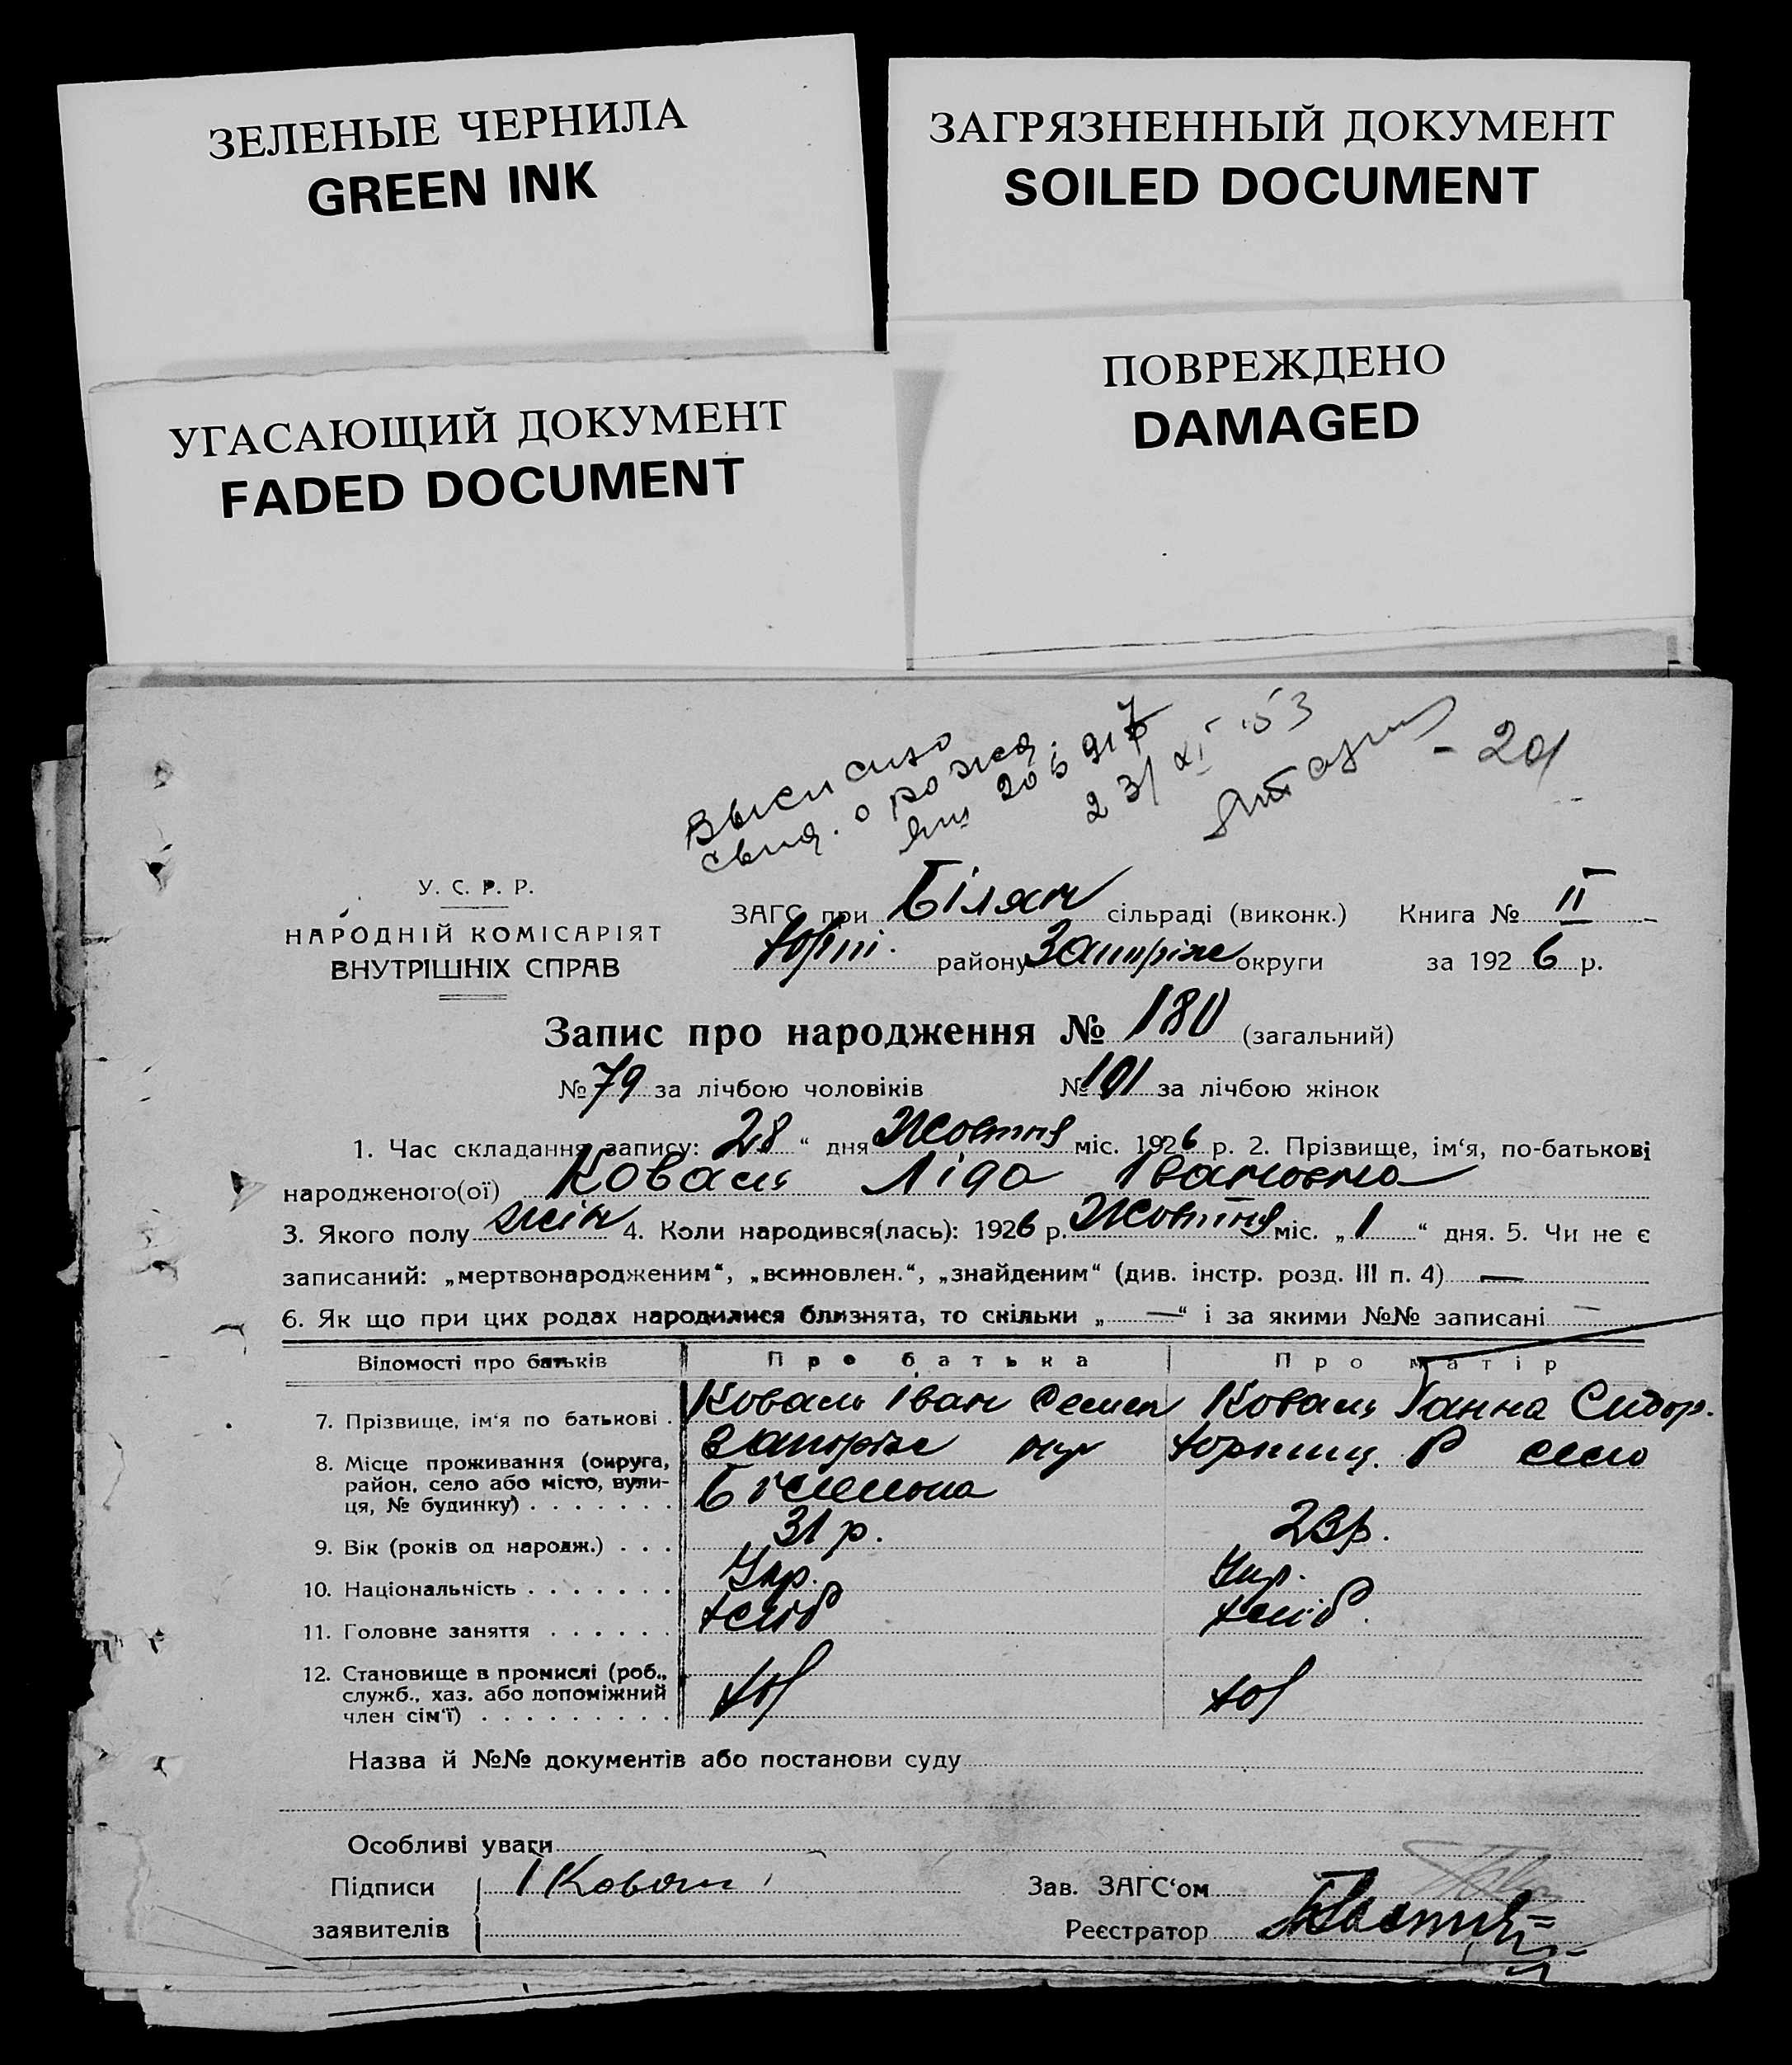 ЗЕЛЕНЫЕ ЧЕРНИЛА
GREEN INK
ЗАГРЯЗНЕННЫЙ ДОКУМЕНТ
SOILED DOCUMENT
УГАСАЮЩИЙ ДОКУМЕНТ
FADED DOCUMENT
ПОВРЕЖДЕНО
DAMAGED
Выписано
свид. о рожд.
53
У. С. Р. Р.
НАРОДНІЙ КОМІСАРІЯТ
ВНУТРІШНІХ СПРАВ
ЗАГС при Білян сільраді (виконк.) Книга № II
району Запоріж округи за 1926 р.
Запис про народження № 180 (загальний)
№ 79 за лічбою чоловіків № 101 за лічбою жінок
1. Час складання запису: 28 “ дня Жовтня міс. 1926 р. 2. Прізвище, ім‘я, по-батькові
народженого(ої) Коваль Ліда Івановна
3. Якого полу жін 4. Коли народився(лась): 1926 р. Жовтня міс. „ 1 “ дня. 5. Чи не є
записаний: „мертвонародженим“, „всиновлен.“, „знайденим“ (див. інстр. розд. III п. 4) —
6. Як що при цих родах народилися близнята, то скільки „ — “ і за якими №№ записані —
Відомості про батьків Про батька Про матір
7. Прізвище, ім‘я по батькові . Коваль Іван Семен Коваль Ганна Сидор.
8. Місце проживання (округа, район, село або місто, вули-ця, № будинку) . . . . . . . Запоріж окр Хортиц. Р село
9. Вік (років од народж.) . . . 31 р. 23 р.
10. Національність . . . . . . . Укр. Укр.
11. Головне заняття . . . . . . хліб хліб.
12. Становище в промислі (роб., служб., хаз. або допоміжний член сім‘ї) . . . . . . . . .
Назва й №№ документів або постанови суду
Особливі уваги
Підписи І Коваль Зав. ЗАГС‘ом
заявителів Реєстратор